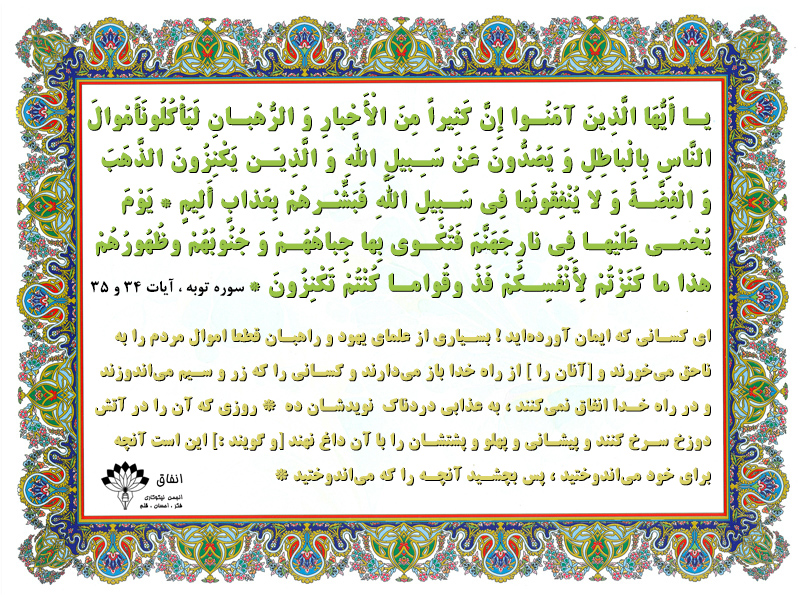 یـا أَیُّهَا الَّذِینَ آمَنُـوا إِنَّ کَثِیراً مِنَ الْأَحْبارِ وَ الرُّهْبـانِ لَیَأْکُلُونَأَمْوالَ
النَّاسِ بِالْباطِلِ وَ یَصُدُّونَ عَنْ سَـبِیلِ اللَّهِ وَ الَّذِیـنَ یَکْنِزُونَ الذَّهَبَ
وَ الْفِضَّـةَ وَ لا یُنْفِقُونَها فِی سَـبِیلِ اللَّهِ فَبَشِّـرْهُمْ بِعَذابٍ أَلِیمٍ * یَوْمَ
یُحْمـی عَلَیْهـا فِی نارِجَهَنَّمَ فَتُکْـوی بِها جِباهُهُـمْ وَ جُنُوبُهُمْ وظُهُورُهُمْ
هذا ما کَنَزْتُمْ لِأَنْفُسِـکُمْ فَذُ وقُوامـا کُنْتُمْ تَکْنِزُونَ * سوره توبه ، آیات ۳۴ و ۳۵
ای کسـانی که ایمان آورده‌اید ! بسـیاری از علمای یهود و راهبـان قطعا اموال مردم را به
ناحق می‌خورند و [آنان را ] از راه خدا باز می‌دارند و کسـانی را که زر و سـیم می‌اندوزند
و در راه خـدا انفاق نمی‌کنند ، به عذابی دردناک نویدشـان ده * روزی که آن را در آتش
دوزخ سـرخ کنند و پیشـانی و پهلو و پشتشـان را با آن داغ نهند [و گویند :] این است آنچه
برای خود می‌اندوختید ، پس بچشـید آنچـه را که می‌اندوختید *
انفاق
انجمن نیکوکاری
فکر ، احسان ، قلم